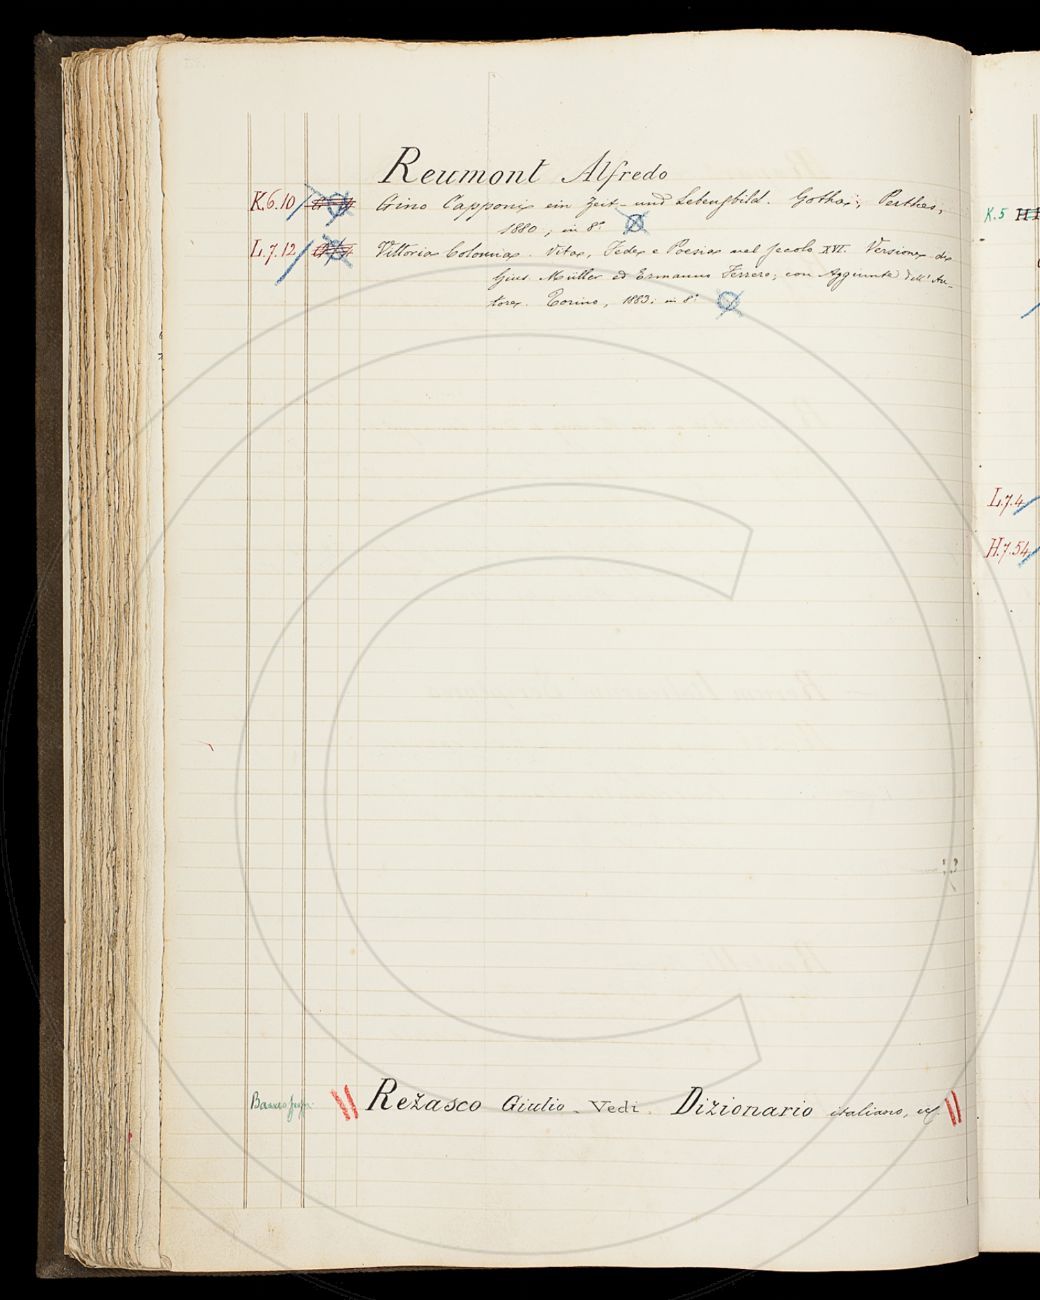 Reumont Alfredo
K.6.10 Gino Capponi, ein Zeit- und Lebensbild. Gotha, Perthes,
1880, in 8°
L.7.12 Vittoria Colonna. Vita, Fede e Poesia nel secolo XVI. Versione di
Gius. Müller ed Ermanno Ferrero, con Aggiunte dell' Au-
tore. Torino, 1883. in 8°
Rezasco Giulio. Vedi. Dizionario italiano, ec
K.5
L.7.4
H.7.54